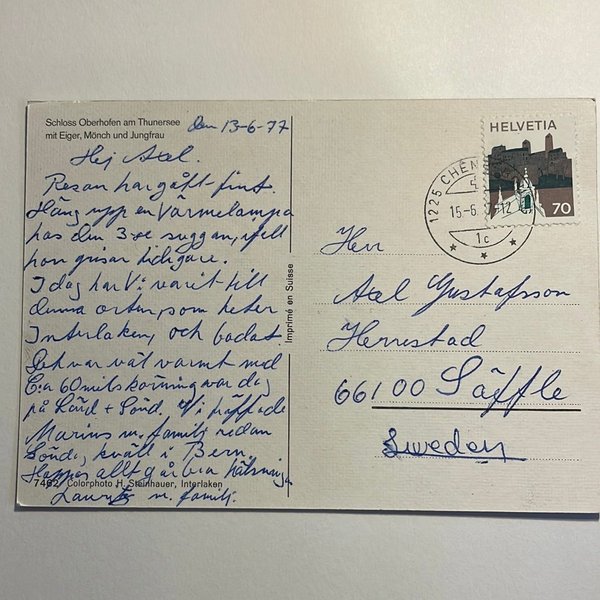 Schloss Oberhofen am Thunersee
mit Eiger, Mönch und Jungfrau
den 13-6-77
Hej Axel.
Resan har gått fint.
Häng upp en Värmelampa
hos den 3-e suggan, ifall
hon grisar tidigare.
I dag har Vi varit till
denna orten, som heter
Interlaken, och badat.
Det var väl varmt med
C:a 60 mils körning var dag
på Lörd + Sönd. Vi träffade
Marius m. familj redan
Sönd. kväll i Bern.
Hoppas allt går bra hälsningar
Lauritz m. familj.
7462 Colorphoto H. Steinhauer, Interlaken
Imprimé en Suisse
HELVETIA
70
1225 CHÊNE
15-6. 12
1c
Herr
Axel Gustafsson
Herrestad
66100 Säffle
Sweden